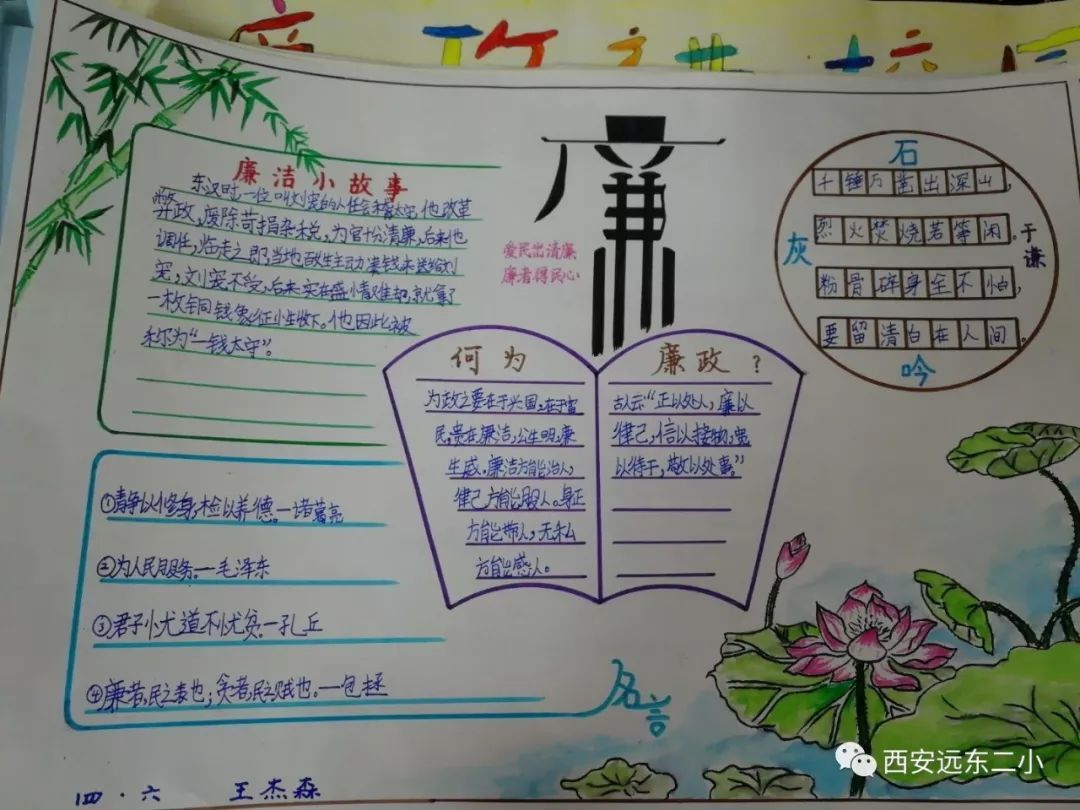 廉洁小故事
东汉时一位叫刘宠的人任会稽太守,他改革
弊政,废除苛捐杂税,为官十分清廉,后来他
调任,临走之即,当地百姓主动凑钱来送给刘
宠,刘宠不受,后来实在盛情难却,就拿了
一枚铜钱象征小生收下。他因此被
称为“一钱太守”。
廉
爱民出清廉
廉者得民心
石
灰
吟
于谦
千锤万凿出深山,
烈火焚烧若等闲。
粉骨碎身全不怕,
要留清白在人间。
何为
为政之要在于兴国,在于富
民,贵在廉洁,公生明,廉
生威。廉洁方能治人,
律己方能服人。身正
方能带人,无私
方能感人。
廉政?
古人云“正以处人,廉以
律己,信以接物,宽
以待下,敬以处事。”
①静以修身,检以养德。—诸葛亮
②为人民服务。—毛泽东
③君子忧道不忧贫。—孔丘
④廉者,民之表也;贪者,民之贼也。—包拯
名言
四·六 王杰森
西安远东二小